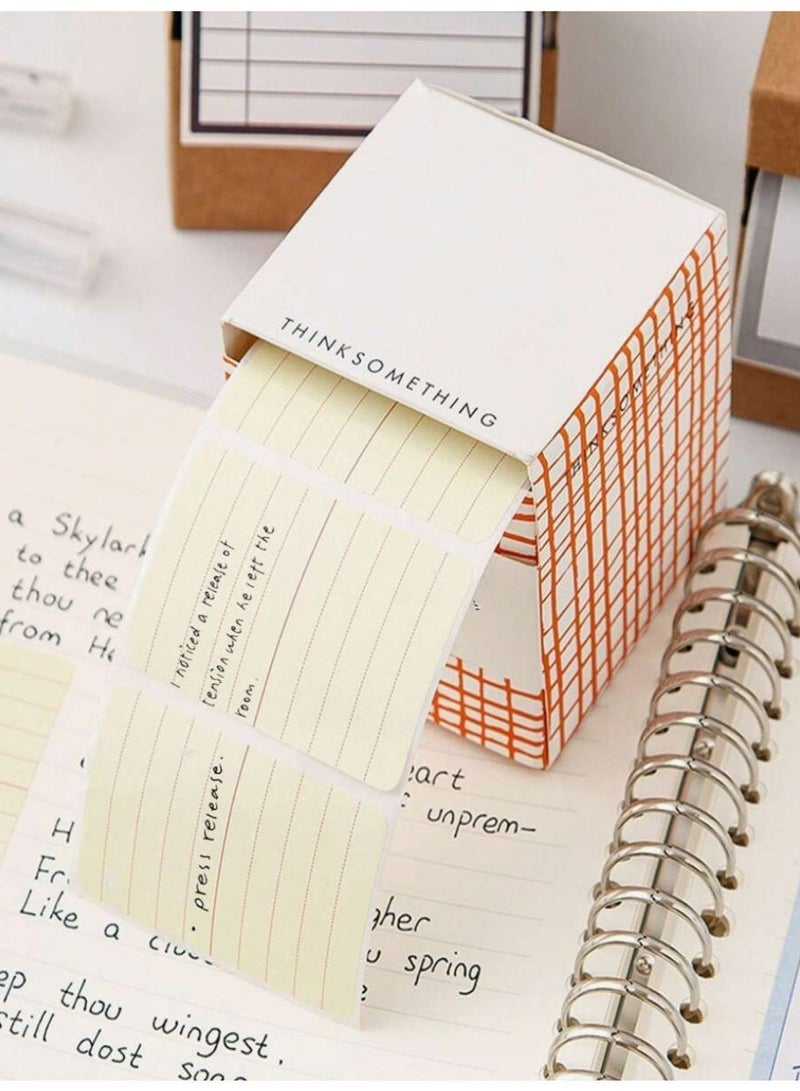 THINKSOMETHING
THINKSOMETHING
I noticed a release of
tension when he left the
room.
• press release.
a Skylark
to thee
thou
from
eart
unprem–
H
Fr
gher
Like a
u spring
ep thou wingest.
still dost